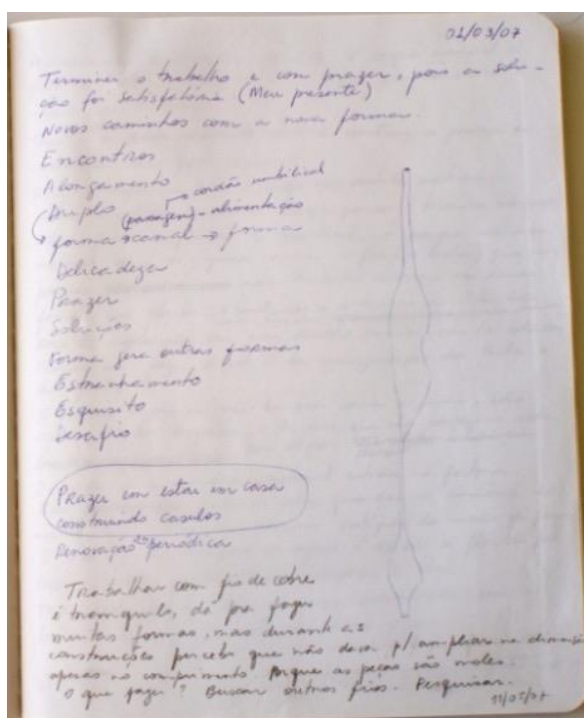 02/03/07
Terminei o trabalho e com prazer, pois a solu-
ção foi satisfatória (Meu presente)
Novos caminhos com a nova forma.
Encontros
Alongamento
→ cordão umbilical
Duplo (passagem) - alimentação
forma → canal → forma
Delicadeza
Prazer
Soluções
Forma gera outras formas
Estranhamento
Esquisito
Desafio
Prazer em estar em casa
construindo casulos
Renovação periódica
Trabalhar com fio de cobre
é tranquilo, dá pra fazer
muitas formas, mas durante as
construções percebi que não dava p/ ampliar na dimensão
apenas no comprimento. Porque as peças são moles.
O que fazer? Buscar outros fios. Pesquisar.